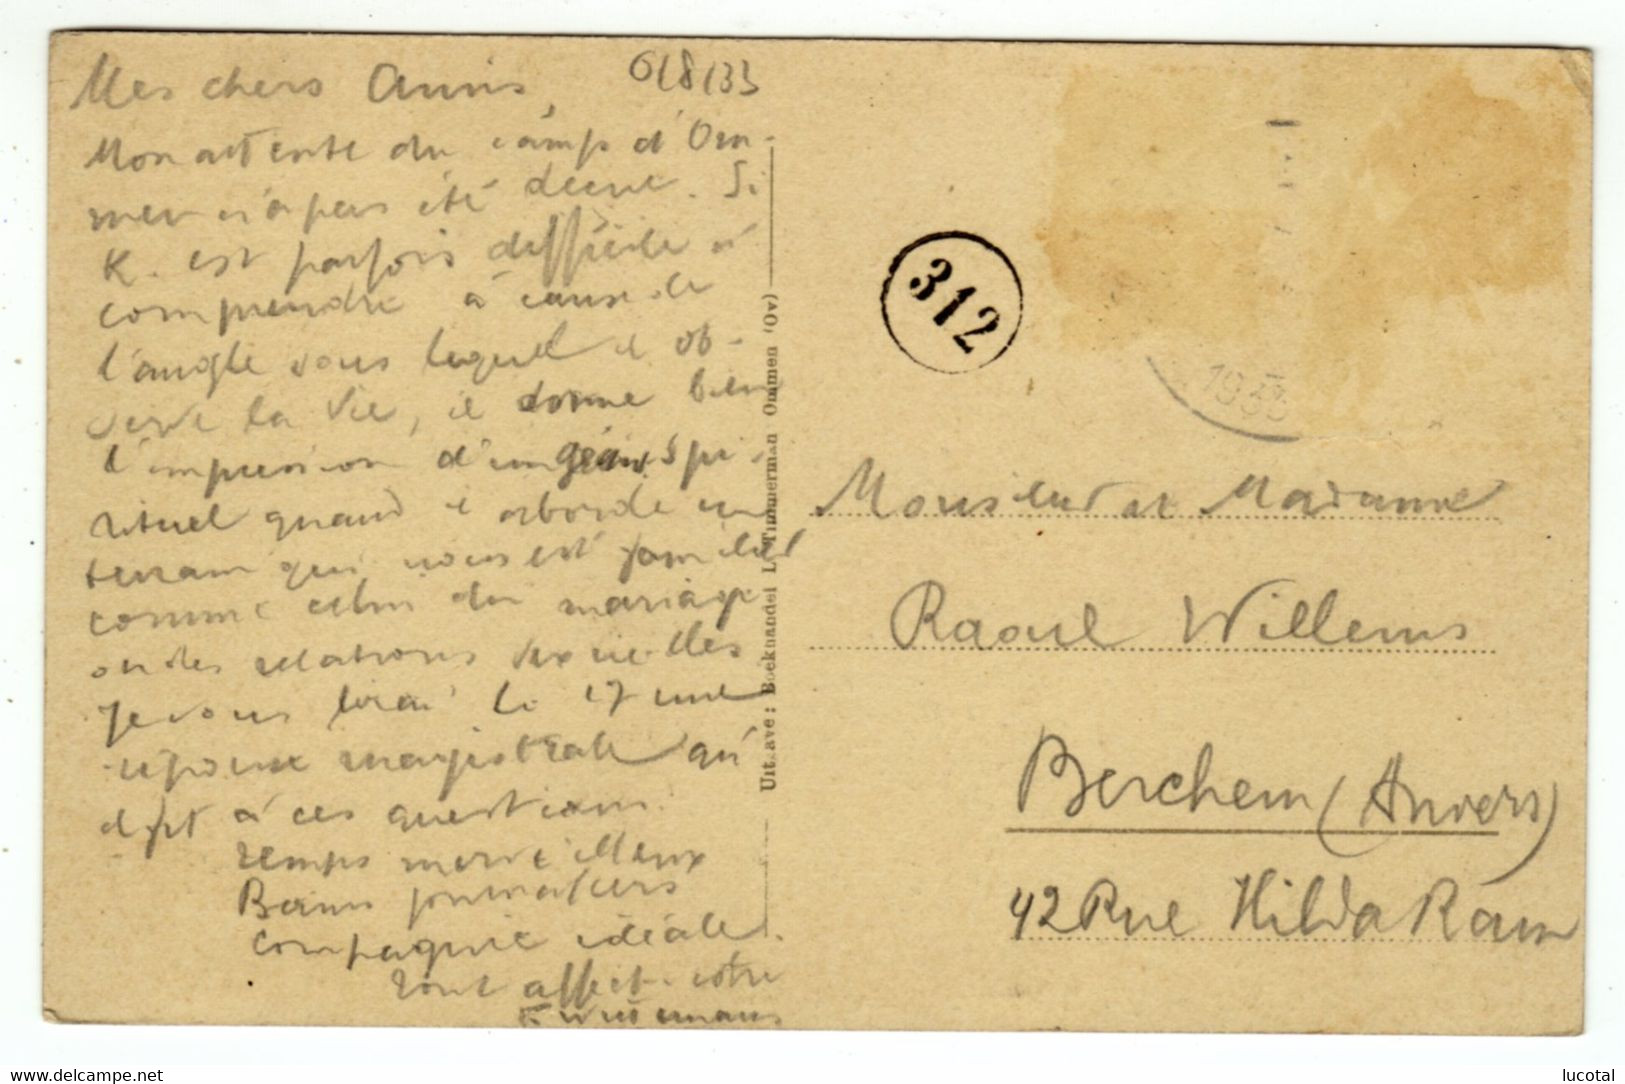 Mes chers Amis, 6/8/33
Mon attente du camp d'Om-
men n'a pas été déçue. Si
K. est parfois difficile à
comprendre à cause de
l'angle sous lequel il ob-
serve la vie, il donne bien
l'impression d'un génie spi-
rituel quand il aborde un
terrain qui nous est familier
comme celui du mariage
ou des relations sexuelles
Je vous lirai le 17 une
réponse magistrale qu'
à ces questions.
Temps merveilleux
Bains journaliers
Compagnie idéale.
Tout affect. votre
Uit.ave: Boekhandel L. Timmerman Ommen (Ov)
312
1933
Monsieur et Madame
Raoul Willems
Berchem (Anvers)
42 Rue Hilda Ram
www.delcampe.net
lucotal